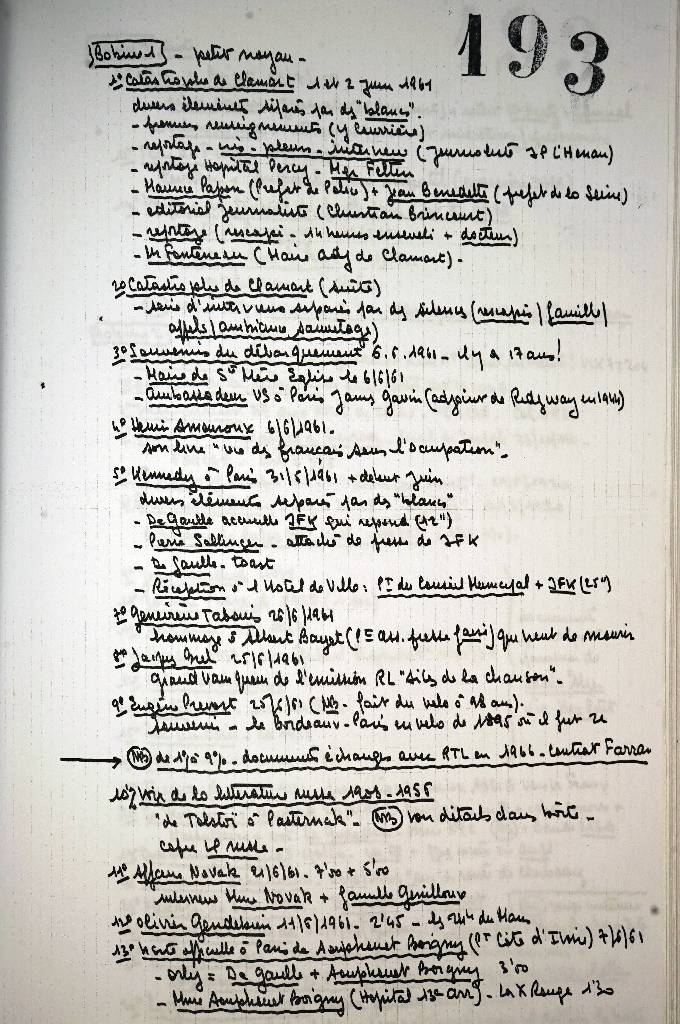 193
Bobine 1 - petit noyau -
1° Catastrophe de Clamart 1 et 2 Juin 1961
divers éléments séparés par des "blancs".
- premiers renseignements (Y Courrière)
- reportage - cris - pleurs - interview (journaliste JP L'Henau)
- reportage Hopital Percy - Mgr Feltin
- Maurice Papon (Préfet de Police) + Jean Benedetti (préfet de la Seine)
- editorial journaliste (Christian Brincourt)
- reportage (rescapé - 14 heures enseveli + docteur)
- Mr Fonteneau (Maire Adj de Clamart) -
2° Catastrophe de Clamart (suite)
- série d'interviews séparés par des silences (rescapés / famille /
appels / ambiance sauvetage)
3° Souvenirs du débarquement 6.6.1961 - il y a 17 ans!
- Maire de Ste Mère Eglise le 6/6/61
- Ambassadeur US à Paris James Gavin (adjoint de Ridgway en 1944)
4° Henri Amouroux 6/6/1961 -
son livre "vie des français sous l'Occupation" -
5° Kennedy à Paris 31/5/1961 + début Juin
divers éléments séparés par des "blancs"
- De Gaulle accueille JFK qui répond (12")
- Pierre Salinger - attaché de presse de JFK
- De Gaulle - toast
- Réception à l'Hotel de Ville : Pt du Conseil Municipal + JFK (25")
7° Geneviève Tabouis 26/6/1961
hommage à Albert Bayet (Pt ass. presse) qui vient de mourir
8° 25/6/1961
grand vainqueur de l'émission RL "Ailes de la chanson" -
9° Eugène Prevost 25/6/61 (NB - fait du vélo à 98 ans).
souvenir - le Bordeaux-Paris en vélo de 1895 où il fut 2e
→ NB de 1°/ à 9°/ - documents échangés avec RTL en 1966 - contrat Farran
10°/ Voix de la litterature russe 1908-1956
"de Tolstoï à Pasternak" - NB voir détails dans boîte -
copie LP russe -
11° Affaire Novak 21/6/61 - 7'00 + 5'00
interview Mme Novak + famille Genilloux
12° Olivier Gendebien 11/6/1961 - 2'45 - les 24h du Mans
13° Visite officielle à Paris de Houphouet Boigny (Pt Côte d'Ivoire) 7/6/61
- Orly = De Gaulle + Houphouet Boigny 3'00
- Mme Houphouet Boigny (Hôpital 13e arr) - La X Rouge 1'30